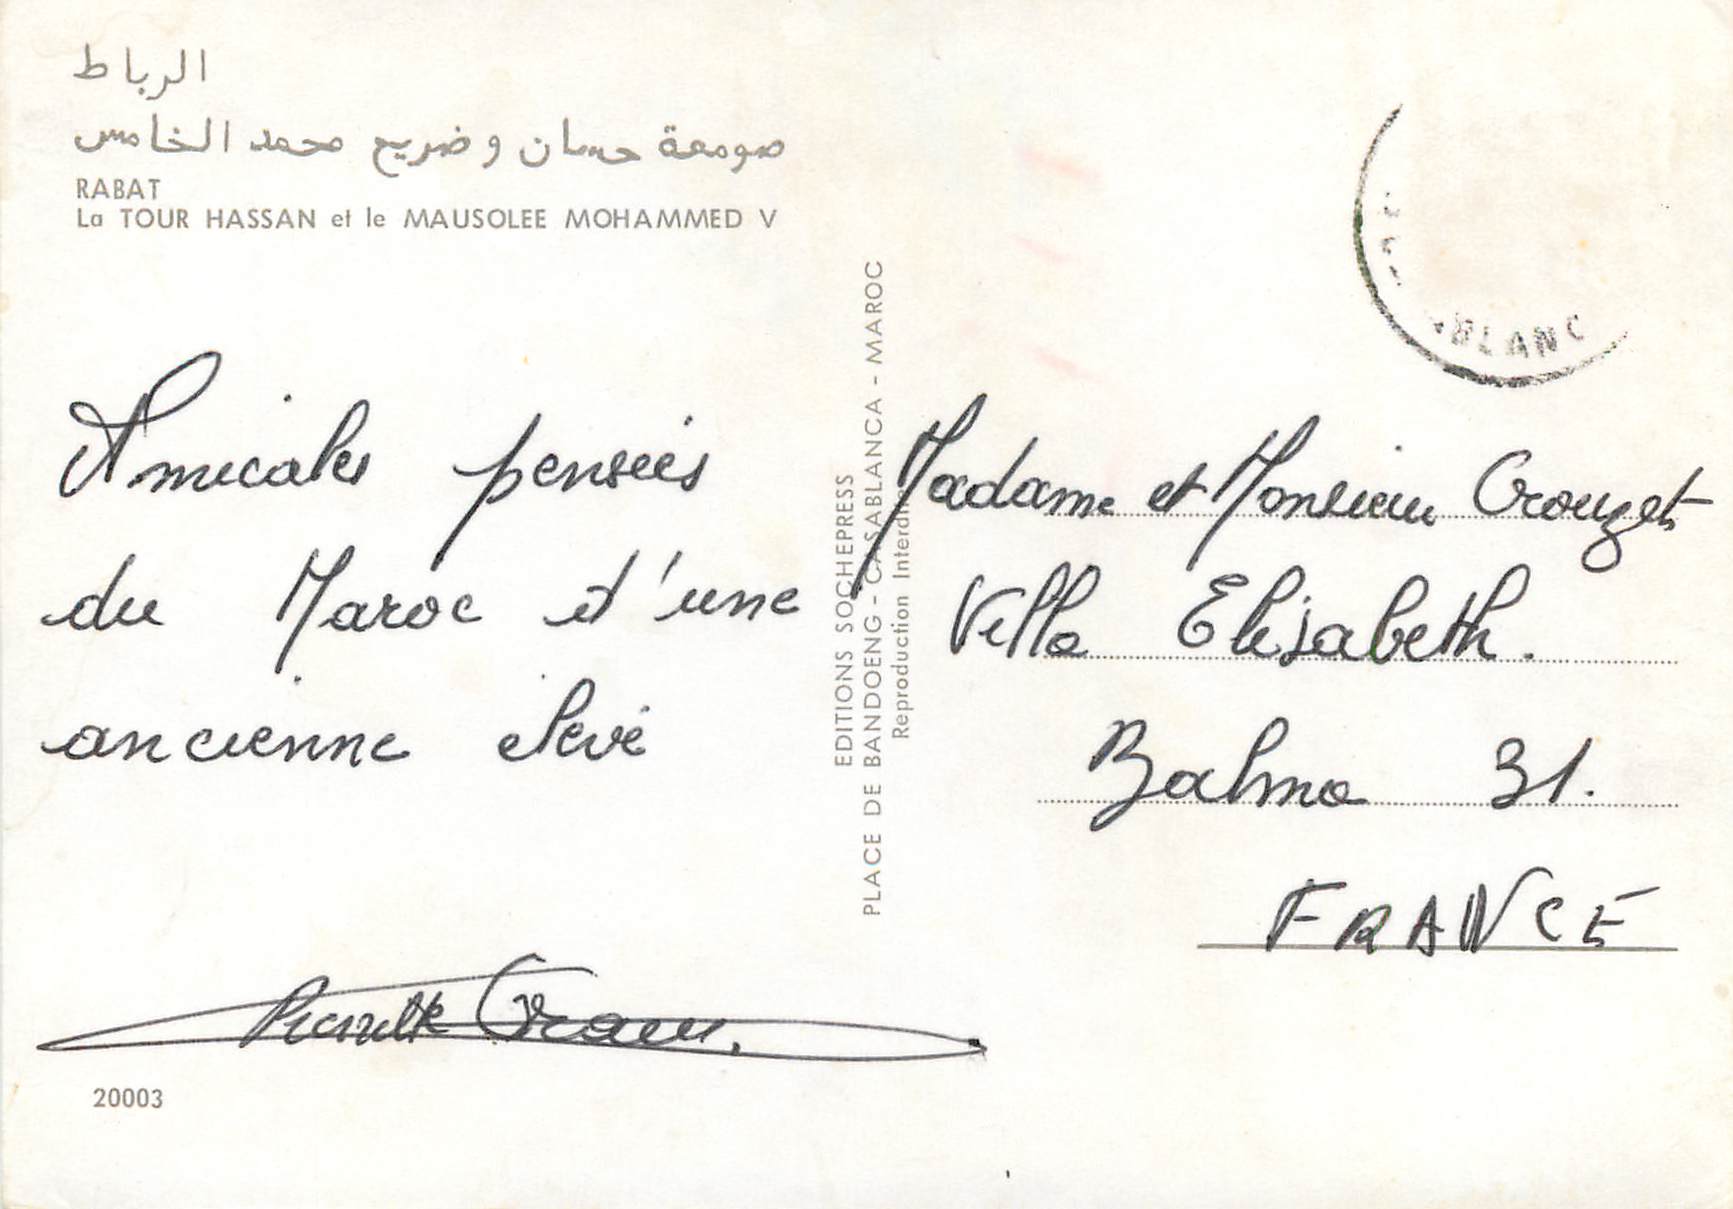 الرباط
صومعة حسان وضريح محمد الخامس
RABAT
La TOUR HASSAN et le MAUSOLEE MOHAMMED V
Amicales pensées
du Maroc et d'une
ancienne élève
Pierrette
20003
EDITIONS SOCHEPRESS
PLACE DE BANDOENG - CASABLANCA - MAROC
Reproduction Interdite
ABLANC
Madame et Monsieur Crouzet
Villa Elisabeth.
Balma 31.
FRANCE